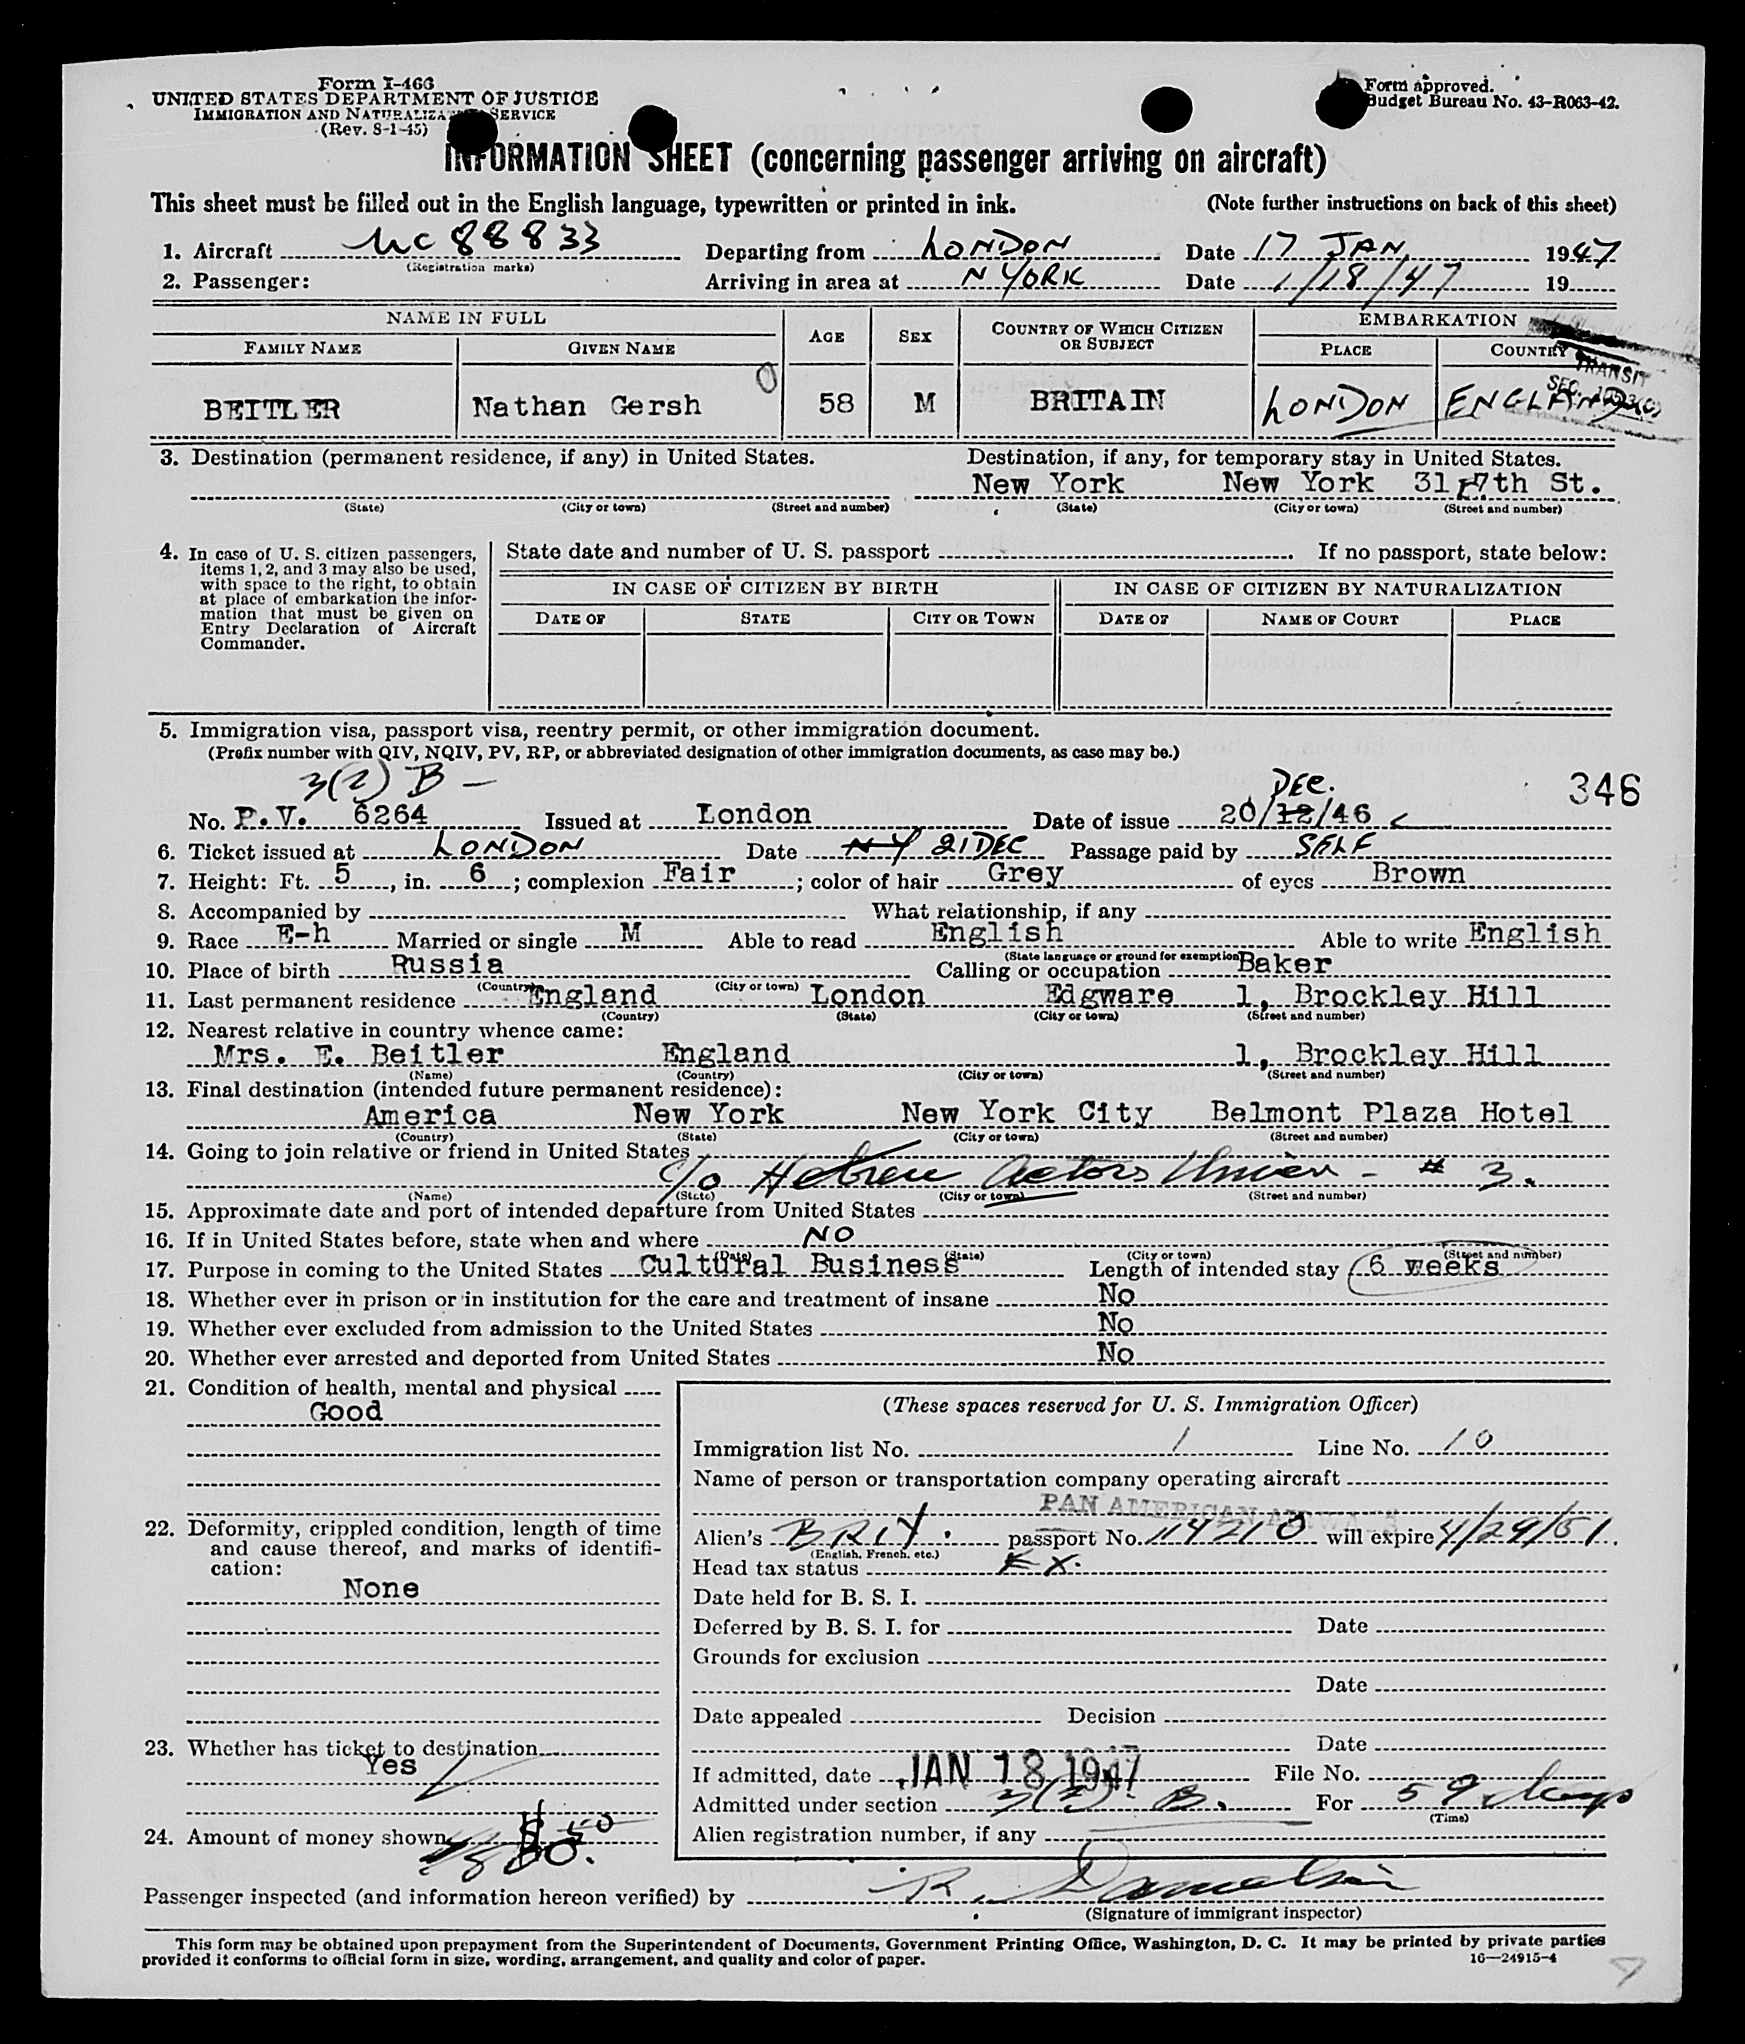 Form I-466
UNITED STATES DEPARTMENT OF JUSTICE
IMMIGRATION AND NATURALIZATION SERVICE
(Rev. 8-1-45)
Form approved.
Budget Bureau No. 43-R063-42.
INFORMATION SHEET (concerning passenger arriving on aircraft)
This sheet must be filled out in the English language, typewritten or printed in ink. (Note further instructions on back of this sheet)
1. Aircraft NC 88833 Departing from LONDON Date 17 JAN, 1947
(Registration marks)
2. Passenger: Arriving in area at N YORK Date 1/18/47 19
NAME IN FULL AGE SEX COUNTRY OF WHICH CITIZEN OR SUBJECT EMBARKATION
FAMILY NAME GIVEN NAME PLACE COUNTRY
TRANSIT
BEITLER Nathan Gersh 58 M BRITAIN LONDON ENGLAND
3. Destination (permanent residence, if any) in United States. Destination, if any, for temporary stay in United States.
New York New York 31 E 7th St.
(State) (City or town) (Street and number) (State) (City or town) (Street and number)
4. In case of U. S. citizen passengers, items 1, 2, and 3 may also be used, with space to the right, to obtain at place of embarkation the information that must be given on Entry Declaration of Aircraft Commander.
State date and number of U. S. passport . If no passport, state below:
IN CASE OF CITIZEN BY BIRTH IN CASE OF CITIZEN BY NATURALIZATION
DATE OF STATE CITY OR TOWN DATE OF NAME OF COURT PLACE
5. Immigration visa, passport visa, reentry permit, or other immigration document.
(Prefix number with QIV, NQIV, PV, RP, or abbreviated designation of other immigration documents, as case may be.)
3(2) B - DEC. 346
No. P.V. 6264 Issued at London Date of issue 20/12/46
6. Ticket issued at LONDON Date NY 21 DEC Passage paid by SELF
7. Height: Ft. 5, in. 6; complexion Fair; color of hair Grey of eyes Brown
8. Accompanied by What relationship, if any
9. Race E-h Married or single M Able to read English Able to write English
(State language or ground for exemption)
10. Place of birth Russia Calling or occupation Baker
(Country) (City or town)
11. Last permanent residence England London Edgware 1, Brockley Hill
(Country) (State) (City or town) (Street and number)
12. Nearest relative in country whence came:
Mrs. E. Beitler England 1, Brockley Hill
(Name) (Country) (City or town) (Street and number)
13. Final destination (intended future permanent residence):
America New York New York City Belmont Plaza Hotel
(Country) (State) (City or town) (Street and number)
14. Going to join relative or friend in United States
c/o Hebrew Actors Union - # 3.
(Name) (State) (City or town) (Street and number)
15. Approximate date and port of intended departure from United States
16. If in United States before, state when and where NO
(Date) (State) (City or town) (Street and number)
17. Purpose in coming to the United States Cultural Business Length of intended stay 6 weeks
18. Whether ever in prison or in institution for the care and treatment of insane No
19. Whether ever excluded from admission to the United States No
20. Whether ever arrested and deported from United States No
21. Condition of health, mental and physical
Good
22. Deformity, crippled condition, length of time and cause thereof, and marks of identification:
None
23. Whether has ticket to destination
Yes
24. Amount of money shown $50
(These spaces reserved for U. S. Immigration Officer)
Immigration list No. 1 Line No. 10
Name of person or transportation company operating aircraft
PAN AMERICAN AIRWAYS
Alien's BRIT. passport No. 114210 will expire 4/29/51.
(English, French, etc.)
Head tax status EX.
Date held for B. S. I.
Deferred by B. S. I. for Date
Grounds for exclusion
Date
Date appealed Decision
Date
If admitted, date JAN 18 1947 File No.
Admitted under section 3(2) B. For 59 days
(Time)
Alien registration number, if any
Passenger inspected (and information hereon verified) by
(Signature of immigrant inspector)
This form may be obtained upon prepayment from the Superintendent of Documents, Government Printing Office, Washington, D. C. It may be printed by private parties
provided it conforms to official form in size, wording, arrangement, and quality and color of paper. 16—24915-4